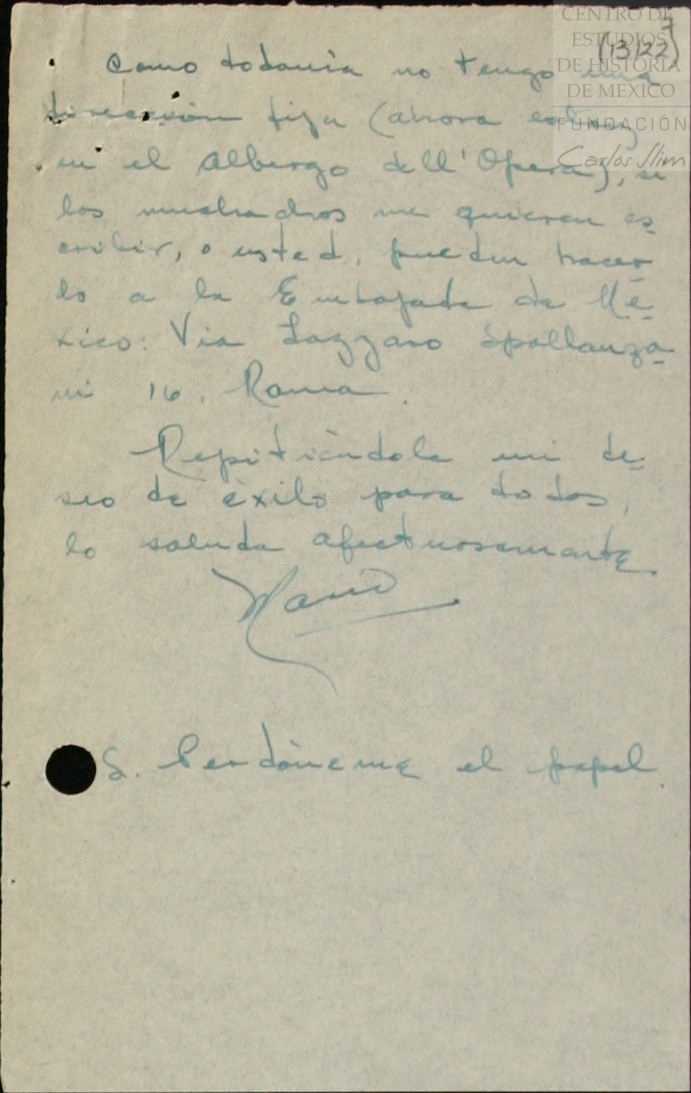 CENTRO DE
ESTUDIOS
DE HISTORIA
DE MÉXICO
FUNDACIÓN
Carlos Slim
7
(13/22)
Como todavía no tengo una
dirección fija (ahora estoy
en el Albergo dell'Opera), si
los muchachos me quieren es-
cribir, o usted, pueden hacer-
lo a la Embajada de Mé-
xico: Via Lazzaro Spallanza-
ni 16, Roma.
Repitiéndole mi de-
seo de éxito para todos,
lo saluda afectuosamente
S. Perdóneme el papel.